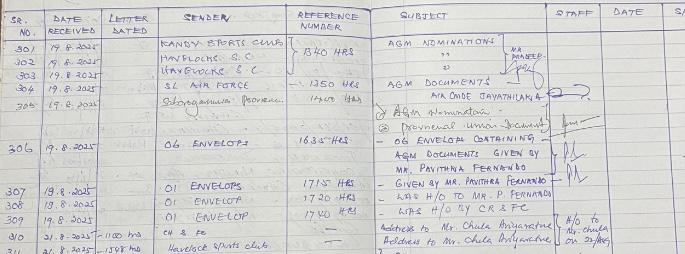 SR. NO. DATE RECEIVED LETTER DATED SENDER REFERENCE NUMBER SUBJECT STAFF DATE
301 19.8.2025 KANDY SPORTS CLUB 1340 HRS AGM NOMINATIONS MR PRADEEP
302 19.8.2025 HAVELOCKS S.C. "
303 19.8.2025 HAVELOCKS S.C. "
304 19.8.2025 SL AIR FORCE - 1350 HRS AGM DOCUMENTS
305 19.8.2025 Sabaragamuwa Province 1400 HRS AIR CMDE JAYATHILAKA
① AGM Nomination
② provincial union Document
306 19.8.2025 06 ENVELOPS 1635 HRS - 06 ENVELOP CONTAINING
AGM DOCUMENTS GIVEN BY
MR. PAVITHRA FERNANDO
307 19.8.2025 01 ENVELOPS 1715 HRS - GIVEN BY MR. PAVITHRA FERNANDO
308 19.8.2025 01 ENVELOP 1720 HRS - WAS H/O TO MR. P. FERNANDO
309 19.8.2025 01 ENVELOP 1740 HRS - WAS H/O BY CR & FC
310 21.8.2025 - 1100 hrs CH & FC — Address to Mr. Chula Ariyaratne H/O to Mr. Chula
311 21.8.2025 - 1548 hrs Havelock Sports club — Address to Mr. Chula Ariyaratne on